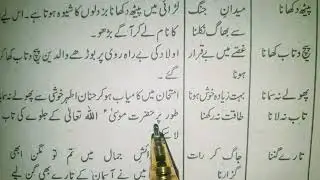 پیٹھ دکھانا میدانِ جنگ لڑائی میں پیٹھ دکھانا بزدلوں کا شیوہ ہوتا ہے۔ اس لیے
سے بھاگ نکلنا کا نام لے کر آگے بڑھو۔
پیچ و تاب کھانا غصے میں بے قرار اولاد کی بے راہ روی پر بوڑھے والدین پیچ و تاب کھا
ہونا گئے۔
پھولے نہ سمانا بہت زیادہ خوش ہونا امتحان میں کامیاب ہو کر حنان اطہر خوشی سے پھولے نہ سما
تاب نہ لانا طاقت نہ رکھنا طور پر حضرت موسیٰؑ اللہ تعالیٰ کے جلوے کی تاب
لا
تارے گننا جاگ کر رات جمال میں تم تو مگن ابھی
گزارنا میں نے آسمان کے تارے بھی گن لیے